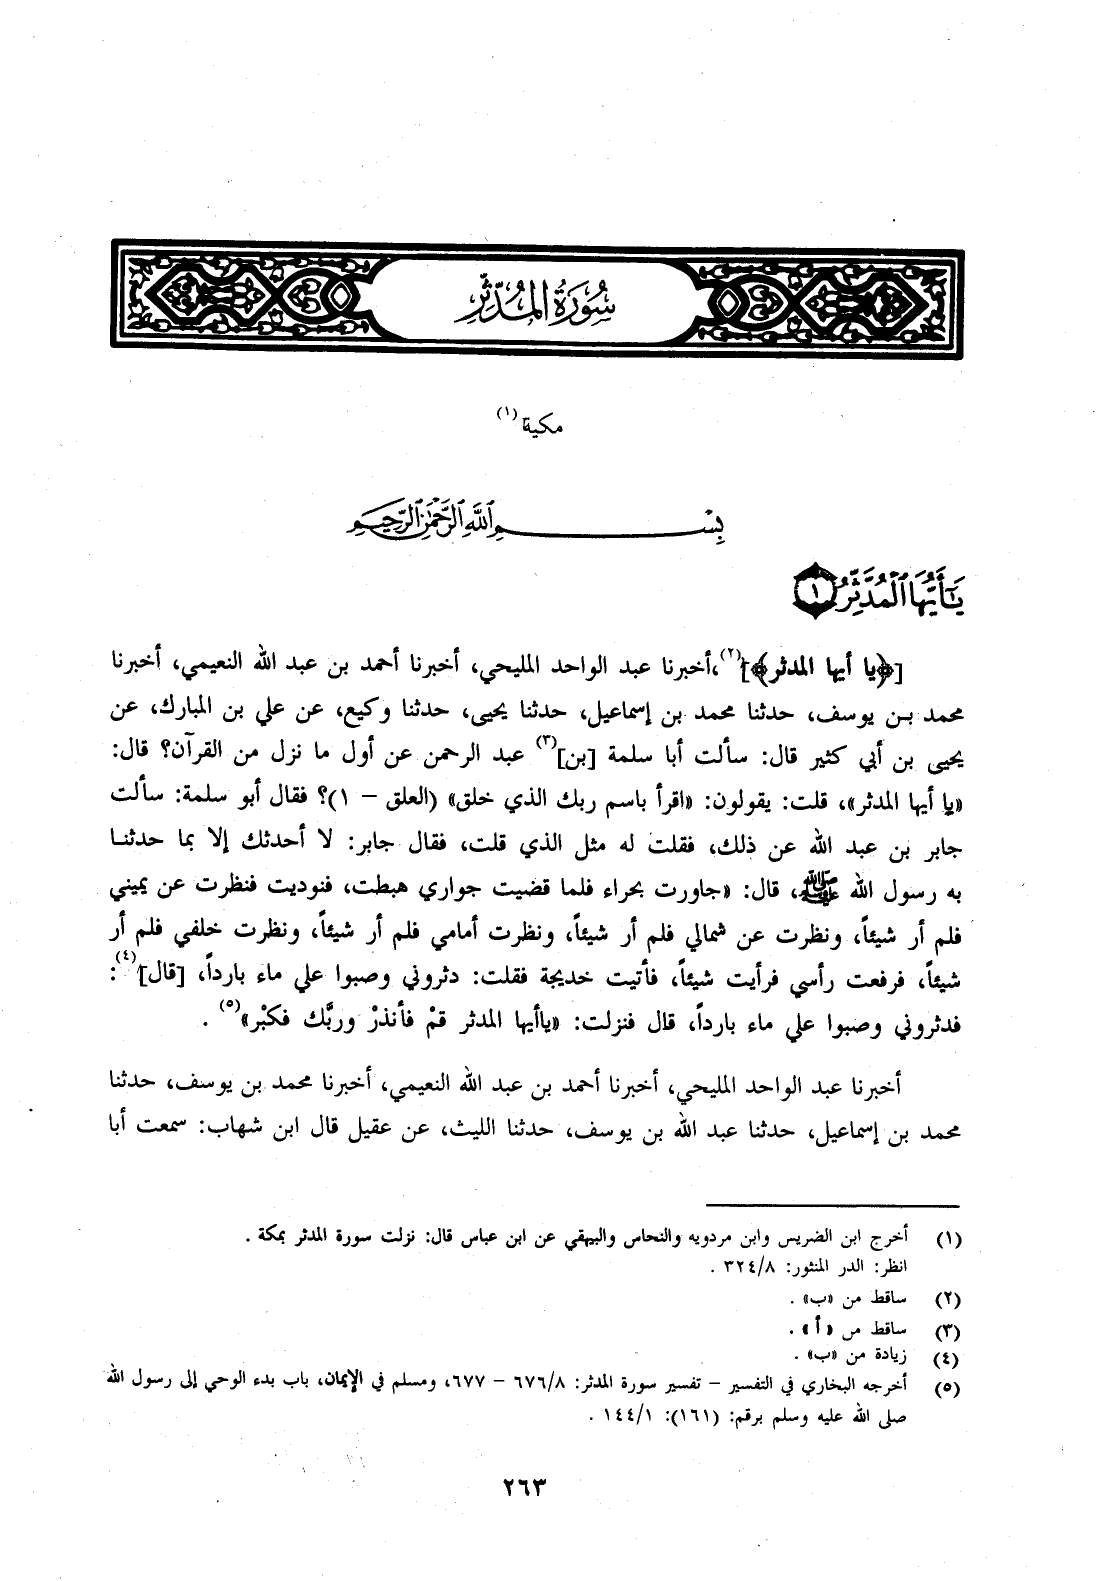 سُورَةُ المُدَّثِّر
مكية (١)
بِسْمِ ٱللَّهِ ٱلرَّحْمَٰنِ ٱلرَّحِيمِ
يَٰٓأَيُّهَا ٱلْمُدَّثِّرُ ١
[﴿يا أيها المدثر﴾](٢)، أخبرنا عبد الواحد المليحي، أخبرنا أحمد بن عبد الله النعيمي، أخبرنا
محمد بن يوسف، حدثنا محمد بن إسماعيل، حدثنا يحيى، حدثنا وكيع، عن علي بن المبارك، عن
يحيى بن أبي كثير قال: سألت أبا سلمة [بن](٣) عبد الرحمن عن أول ما نزل من القرآن؟ قال:
«يا أيها المدثر»، قلت: يقولون: «اقرأ باسم ربك الذي خلق» (العلق – ١)؟ فقال أبو سلمة: سألت
جابر بن عبد الله عن ذلك، فقلت له مثل الذي قلت، فقال جابر: لا أحدثك إلا بما حدثنا
به رسول الله ﷺ، قال: «جاورت بحراء فلما قضيت جواري هبطت، فنوديت فنظرت عن يميني
فلم أر شيئاً، ونظرت عن شمالي فلم أر شيئاً، ونظرت أمامي فلم أر شيئاً، ونظرت خلفي فلم أر
شيئاً، فرفعت رأسي فرأيت شيئاً، فأتيت خديجة فقلت: دثروني وصبوا علي ماء بارداً، [قال](٤):
فدثروني وصبوا علي ماء بارداً، قال فنزلت: «ياأيها المدثر قمْ فأنذرْ وربَّك فكبْر»(٥) .
أخبرنا عبد الواحد المليحي، أخبرنا أحمد بن عبد الله النعيمي، أخبرنا محمد بن يوسف، حدثنا
محمد بن إسماعيل، حدثنا عبد الله بن يوسف، حدثنا الليث، عن عقيل قال ابن شهاب: سمعت أبا
(١) أخرج ابن الضريس وابن مردويه والنحاس والبيهقي عن ابن عباس قال: نزلت سورة المدثر بمكة .
انظر: الدر المنثور: ٣٢٤/٨ .
(٢) ساقط من «ب» .
(٣) ساقط من «أ» .
(٤) زيادة من «ب» .
(٥) أخرجه البخاري في التفسير – تفسير سورة المدثر: ٦٧٦/٨ – ٦٧٧، ومسلم في الإيمان، باب بدء الوحي إلى رسول الله
صلى الله عليه وسلم برقم: (١٦١): ١٤٤/١ .
٢٦٣